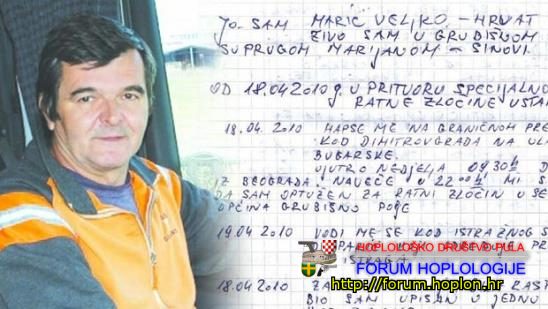 JO SAM MARIĆ VELJKO, - HRVAT
ŽIVO SAM U GRUBIŠNOM
SUPRUGOM MARIJANOM - SINOVI
OD 18.04.2010 g. U PRITVORU SPECIJALNO
RATNE ZLOČINE USTA
18.04.2010 HAPSE ME NA GRANIČNOM PRE
KOD DIMITROVGRADA NA UL
BUGARSKE.
UJUTRO NEDJELJA
IZ BEOGRADA. NAVEČE 22 MI S
DA SAM OPTUŽEN ZA RATNI ZLOČIN U SE
OPĆINA GRUBIŠNO POJE
19.04.2010 VODI ME SE KOD ISTRAŽNOG S
ISTRAGA
18.04.2010 ZA RASP
BIO SAM UPISAN U JEDNU
HOPLOLOŠKO DRUŠTVO PULA
FORUM HOPLOLOGIJE
http://forum.hoplon.hr